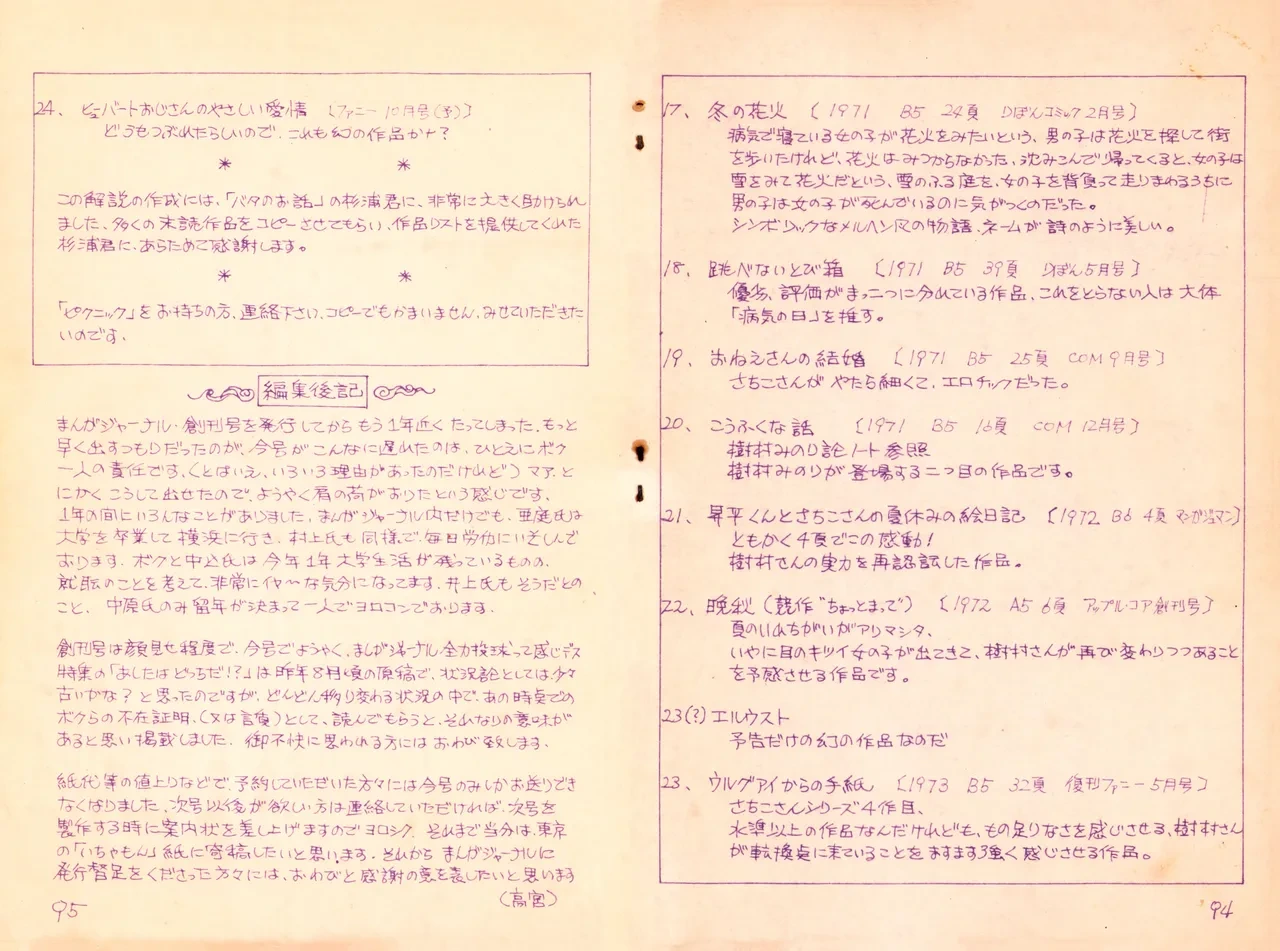 17、 冬の花火 〔1971 B5 24頁 りぼんコミック2月号〕
病気で寝ている女の子が花火をみたいという、男の子は花火を探して街
を歩いたけれど、花火はみつからなかった、沈みこんで帰ってくると、女の子は
雪をみて花火だという、雪のふる庭を、女の子を背負って走りまわるうちに
男の子は女の子が死んでいるのに気がつくのだった。
シンボリックなメルヘン風の物語、ネームが詩のように美しい。
18、 跳べないとび箱 〔1971 B5 39頁 りぼん5月号〕
優劣、評価がまっ二つに分れている作品、これをとらない人は大体
「病気の日」を推す。
19、 おねえさんの結婚 〔1971 B5 25頁 COM9月号〕
さちこさんがやたら細くて、エロチックだった。
20、 こうふくな話 〔1971 B5 16頁 COM12月号〕
樹村みのり論ノート参照
樹村みのりが登場する二つ目の作品です。
21、 昇平くんとさちこさんの夏休みの絵日記 〔1972 B6 4頁 マンガジュマン〕
ともかく4頁でこの感動!
樹村さんの実力を再認識した作品。
22、 晩秋(競作“ちょっとまって”) 〔1972 A5 6頁 アップル・コア創刊号〕
夏のいれちがいがアリマシタ、
いやに目のキツイ女の子が出てきて、樹村さんが再び変わりつつあること
を予感させる作品です。
23(?)エルウスト
予告だけの幻の作品なのだ
23、 ウルグアイからの手紙 〔1973 B5 32頁 復刊ファニー5月号〕
さちこさんシリーズ4作目、
水準以上の作品なんだけれども、もの足りなさを感じさせる、樹村さん
が転換点に来ていることをますます強く感じさせる作品。
94
24、 ヒューバートおじさんのやさしい愛情 〔ファニー10月号(予)〕
どうもつぶれたらしいので、これも幻の作品かナ?
* *
この解説の作成には、「バタのお話」の杉浦君に、非常に大きく助けられ
ました、多くの未読作品をコピーさせてもらい、作品リストを提供してくれた
杉浦君に、あらためて感謝します。
* *
「ピクニック」をお持ちの方、連絡下さい、コピーでもかまいません、みせていただきた
いのです、
編集後記
まんがジャーナル・創刊号を発行してからもう1年近くたってしまった、もっと
早く出すつもりだったのが、今号がこんなに遅れたのは、ひとえにボク
一人の責任です、(とはいえ、いろいろ理由があったのだけれど)マア、と
にかくこうして出せたので、ようやく肩の荷がおりたという感じです、
1年の間にいろんなことがありました、まんがジャーナル内だけでも、亜庭氏は
大学を卒業して横浜に行き、村上氏も同様で、毎日労働にいそしんで
おります、ボクと中込氏は今年1年大学生活が残っているものの、
就職のことを考えて、非常にイヤ〜な気分になってます、井上氏もそうだとの
こと、中原氏のみ留年が決まって一人でヨロコンでおります、
創刊号は顔見せ程度で、今号でようやく、まんがジャーナル全力投球って感じデス
特集の「あしたはどっちだ!?」は昨年8月頃の原稿で、状況論としては少々
古いかな?と思ったのですが、どんどん移り変わる状況の中で、あの時点での
ボクらの不在証明、(又は言負)として、読んでもらうと、それなりの意味が
あると思い掲載しました、御不快に思われる方にはおわび致します、
紙代等の値上りなどで、予約していただいた方々には今号のみしかお送りでき
なくなりました、次号以後が欲しい方は連絡していただければ、次号を
製作する時に案内状を差し上げますのでヨロシク、それまで当分は、東京
の「いちゃもん」紙に寄稿したいと思います、それから まんがジャーナルに
発行督促をくださった方々には、おわびと感謝の意を表したいと思います
(高宮)
95